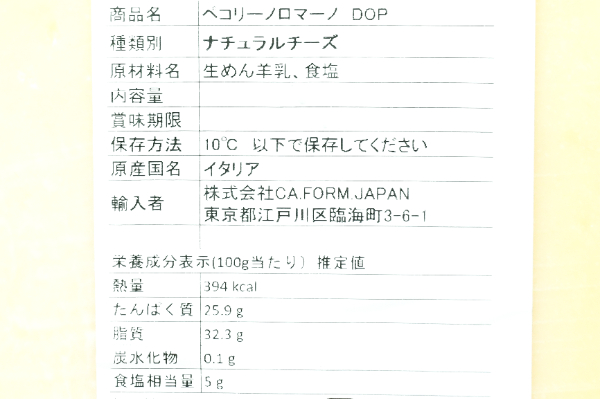 商品名 ペコリーノロマーノ DOP
種類別 ナチュラルチーズ
原材料名 生めん羊乳、食塩
内容量
賞味期限
保存方法 10℃ 以下で保存してください
原産国名 イタリア
輸入者 株式会社CA.FORM.JAPAN
東京都江戸川区臨海町3-6-1
栄養成分表示(100g当たり) 推定値
熱量 394 kcal
たんぱく質 25.9 g
脂質 32.3 g
炭水化物 0.1 g
食塩相当量 5 g